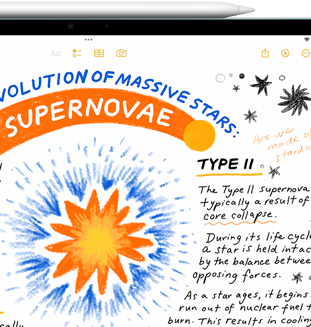 VOLUTION OF MASSIVE STARS:
SUPERNOVAE
Aa
Are we
made of
stardu
TYPE II
The Type II supernova
typically a result of
core collapse.
During its life cycle
a star is held intac
by the balance betwee
opposing forces.
As a star ages, it begins
run out of nuclear fuel t
burn. This results in cooling
cally